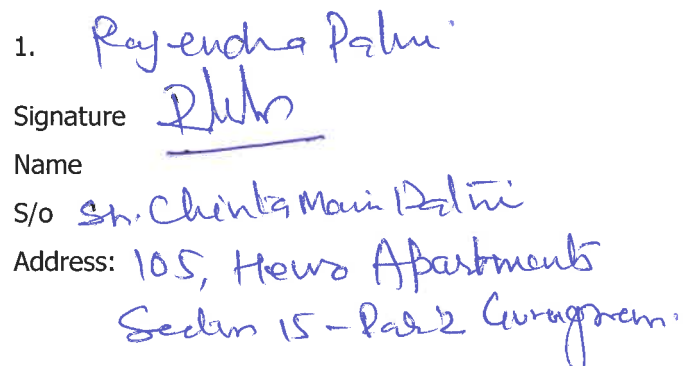 1. Rajendra Patni
Signature
Name
S/o Sh. Chinta Mani Patni
Address: 105, Hewo Apartments
Sector 15 - Part 2 Gurugram.